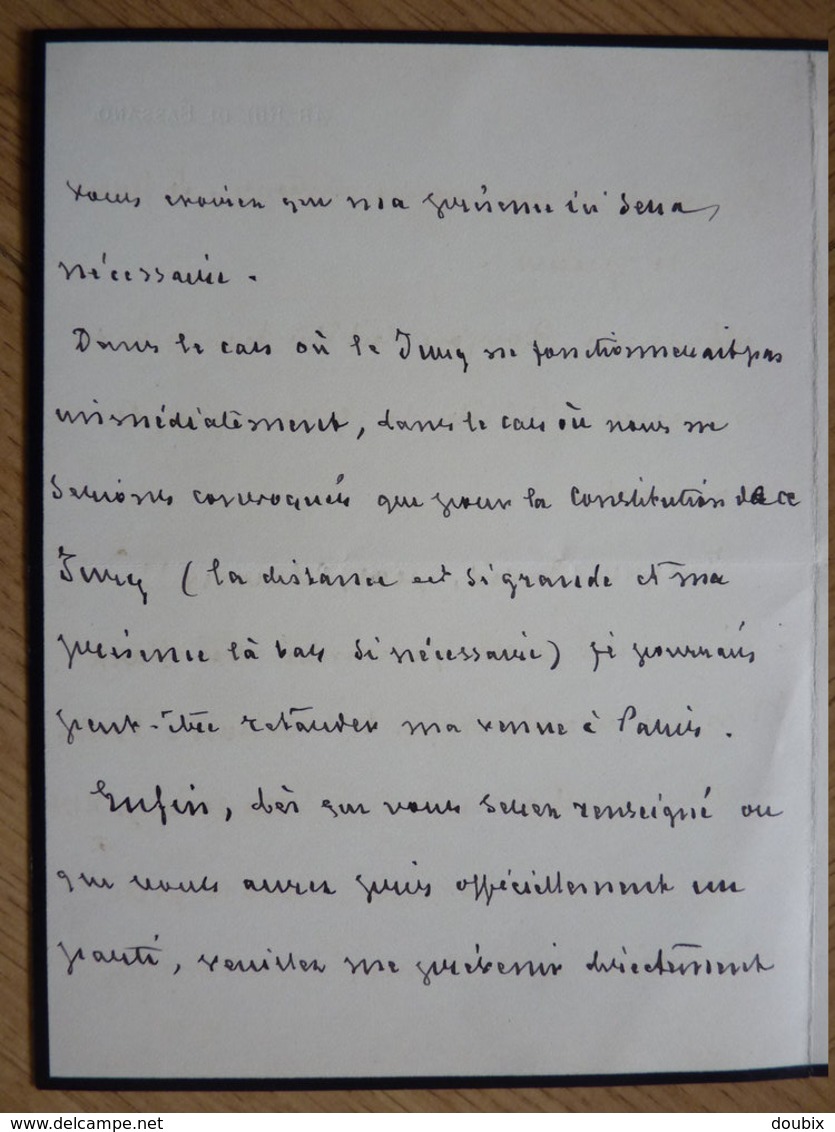 vous croirez que ma présence ici sera
nécessaire.
Dans le cas où le Jury ne fonctionnerait pas
immédiatement, dans le cas où nous ne
serions convoqués que pour la constitution de ce
Jury (la distance est si grande et ma
présence là bas si nécessaire) je pourrais
peut-être retarder ma venue à Paris.
Enfin, dès que vous serez renseigné ou
que vous aurez pris officiellement un
parti, veuillez me prévenir directement
www.delcampe.net
doubix